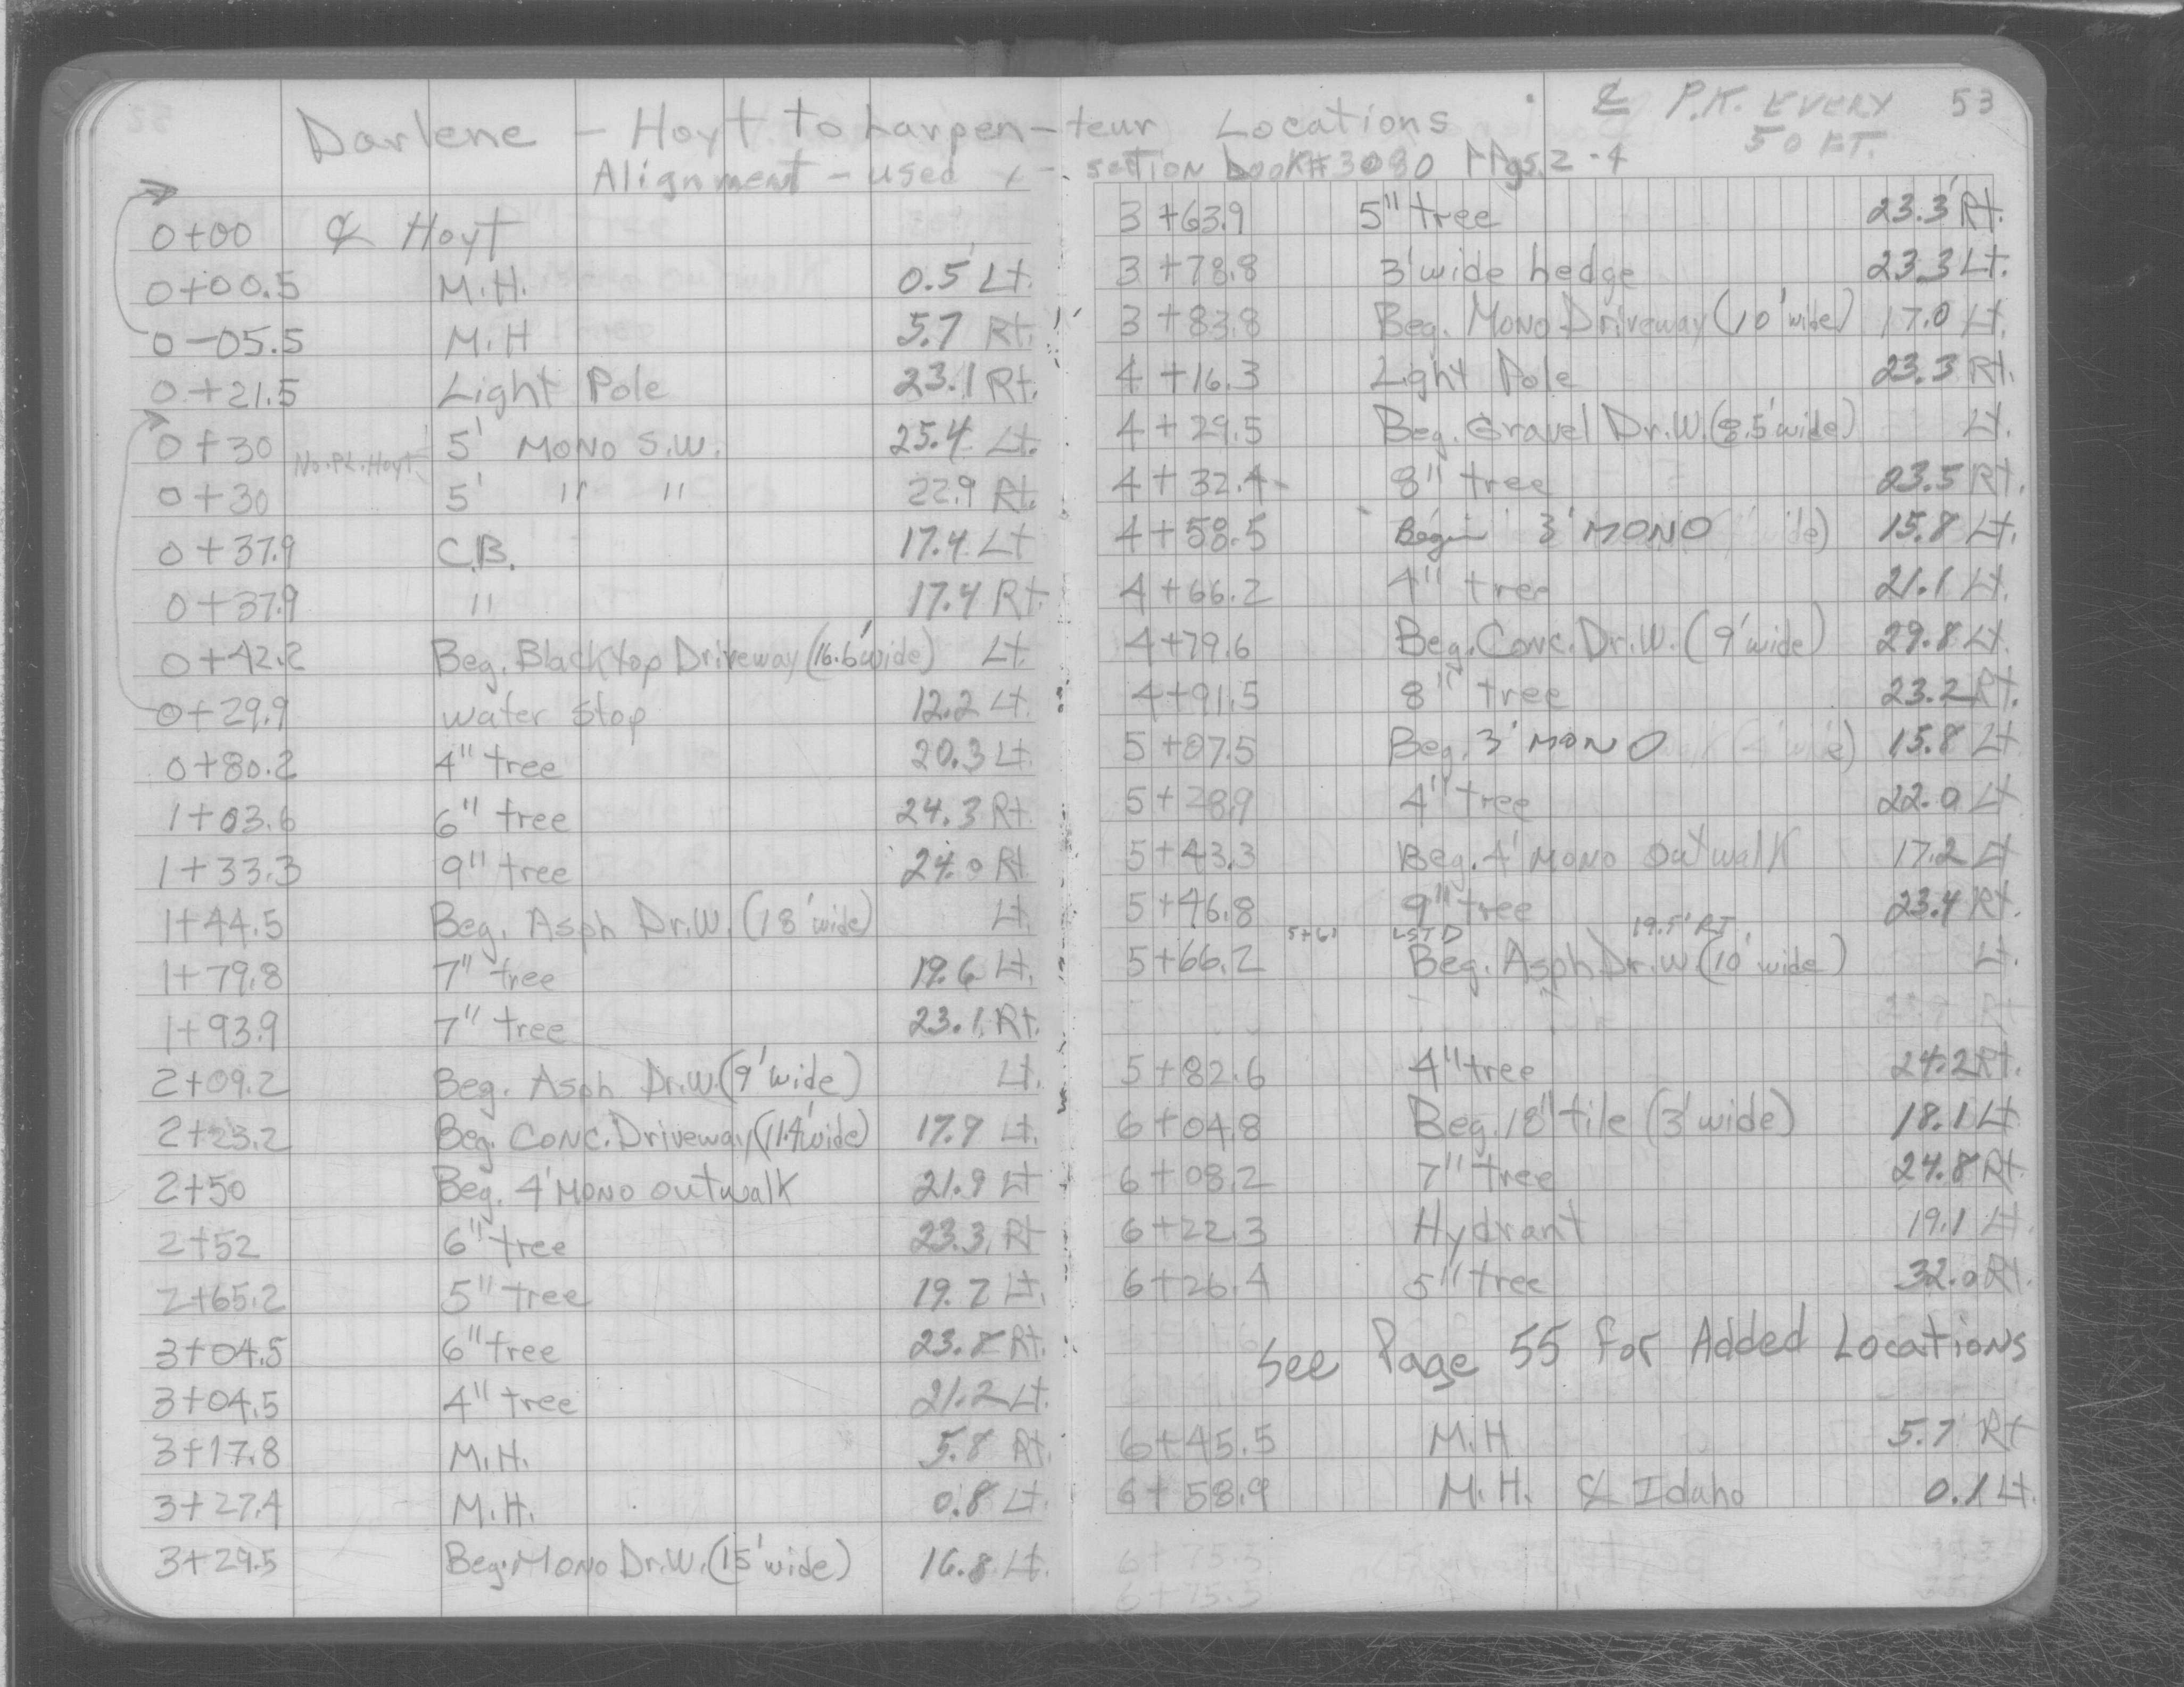 Darlene - Hoyt to Larpen-teur Locations
℄ P.K. EVERY 53
50 FT.
Alignment - used x-section book# 3080 Pgs. 2-4
0+00 ℄ Hoyt
0+00.5 M.H. 0.5' Lt.
0-05.5 M.H 5.7 Rt.
0+21.5 Light Pole 23.1 Rt.
0+30 5' MONO S.W. 25.4 Lt.
No. PL. Hoyt
0+30 5' " " 22.9 Rt.
0+37.9 C.B. 17.4 Lt
0+37.9 " 17.4 Rt.
0+42.2 Beg. Blacktop Driveway (16.6' wide) Lt.
0+29.9 water stop 12.2 Lt.
0+80.2 4" tree 20.3 Lt.
1+03.6 6" tree 24.3 Rt.
1+33.3 9" tree 24.0 Rt
1+44.5 Beg. Asph Dr.W. (18' wide) Lt.
1+79.8 7" tree 19.6 Lt.
1+93.9 7" tree 23.1 Rt.
2+09.2 Beg. Asph Dr.W. (9' wide) Lt.
2+23.2 Beg. Conc. Driveway (11.4' wide) 17.9 Lt.
2+50 Beg. 4' MONO outwalk 21.9 Lt
2+52 6" tree 23.3 Rt
2+65.2 5" tree 19.2 Lt.
3+04.5 6" tree 23.8 Rt.
3+04.5 4" tree 21.2 Lt.
3+17.8 M.H. 5.8 Rt.
3+27.4 M.H. 0.8 Lt.
3+29.5 Beg. MONO Dr.W. (15' wide) 16.8 Lt.
3+63.9 5" tree 23.3' Rt.
3+78.8 3' wide hedge 23.3 Lt.
3+83.8 Beg. Mono Driveway (10' wide) 17.0 Lt.
4+16.3 Light Pole 23.3 Rt.
4+29.5 Beg. Gravel Dr.W. (8.5' wide) Lt.
4+32.4 8" tree 23.5 Rt.
4+58.5 Begin 3' MONO 15.8 Lt.
4+66.2 4" tree 21.1 Lt.
4+79.6 Beg. Conc. Dr.W. (9' wide) 29.8 Lt.
4+91.5 8" tree 23.2 Rt.
5+07.5 Beg. 3' MONO 15.8 Lt
5+28.9 4" tree 22.0 Lt
5+43.3 Beg. 4' MONO Outwalk 17.2 Lt
5+46.8 9" tree 23.4 Rt.
5+61 LSTD 19.5' RT.
5+66.2 Beg. Asph Dr.W. (10' wide) Lt.
5+82.6 4" tree 24.2 Rt.
6+04.8 Beg. 18" tile (3' wide) 18.1 Lt
6+08.2 7" tree 24.8 Rt.
6+22.3 Hydrant 19.1 Lt.
6+26.4 5" tree 32.0 Rt.
See Page 55 for Added Locations
6+45.5 M.H 5.7 Rt
6+58.9 M.H. ℄ Idaho 0.1 Lt.
6+75.5
6+75.5